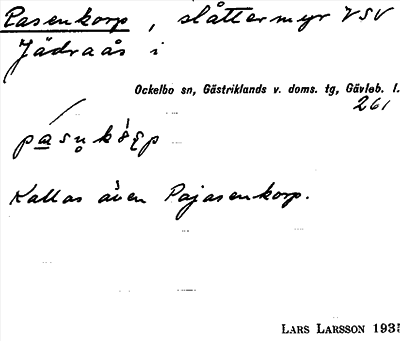 Pasenkorp, slåttermyr VSV
Jädraås i
Ockelbo sn, Gästriklands v. doms. tg, Gävleb. l.
261
Kallas även Pajasenkorp.
LARS LARSSON 1935